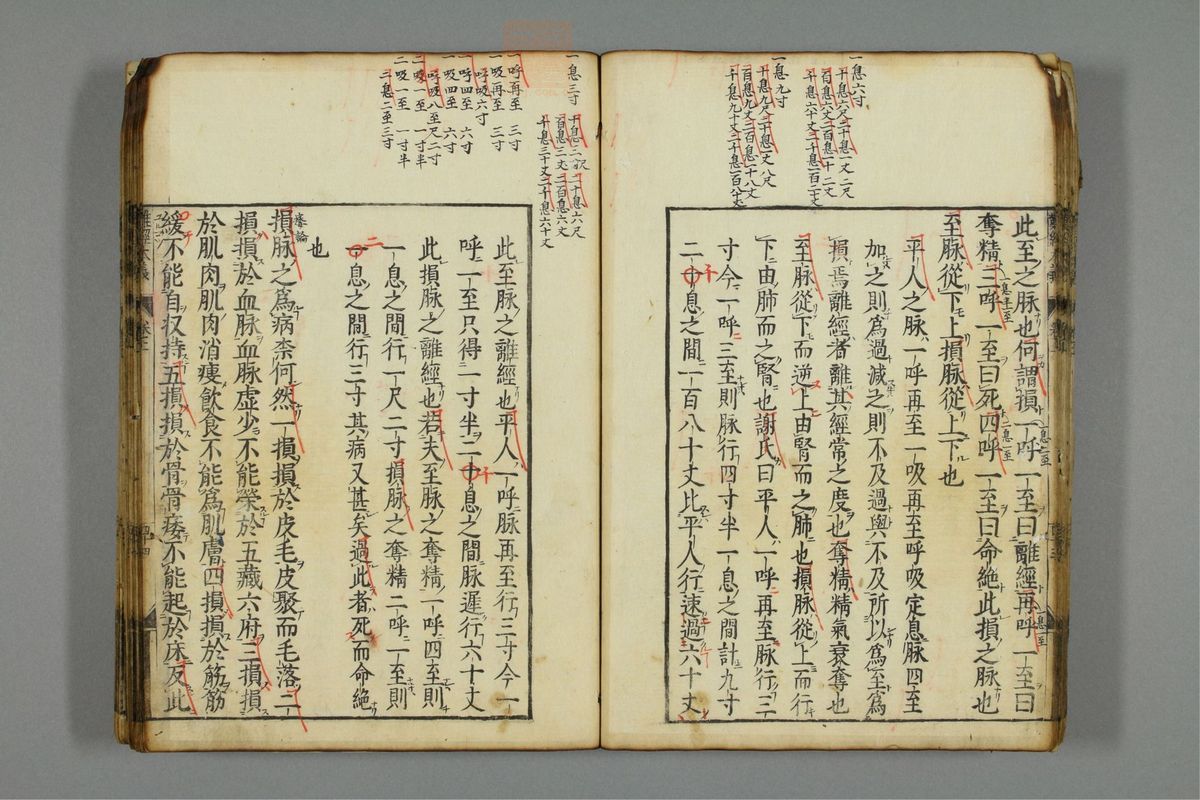 一息六寸
十息六尺二十息一丈二尺
百息六丈二百息十二丈
千息六十丈二千息一百二十丈
一息九寸
十息九尺二十息一丈八尺
百息九丈二百息十八丈
千息九十丈二千息一百八十丈
此至之脉也何謂損一呼一至曰離經再呼一至曰
奪精三呼一至曰死四呼一至曰命絶此損之脉也
至脉從下上損脉從上下也
平人之脉一呼再至一吸再至呼吸定息脉四至
加之則爲過減之則不及過與不及所以爲至爲
損焉離經者離其經常之度也奪精精氣衰奪也
至脉從下而逆上由腎而之肺也損脉從上而行
下由肺而之腎也謝氏曰平人一呼再至脉行三
寸今一呼三至則脉行四寸半一息之間計九寸
二十息之間一百八十丈比平人行速過六十丈
一息三寸
十息三尺二十息六尺
百息三丈二百息六丈
千息三十丈二千息六十丈
一呼再至 三寸
一吸再至 三寸
呼吸六寸
一呼四至 六寸
一吸四至 六寸
呼吸八至尺二寸
二呼一至 一寸半
二吸一至 一寸半
二息二至三寸
此至脉之離經也平人一呼脉再至行三寸今一
呼一至只得一寸半二十息之間脉遲行六十丈
此損脉之離經也若夫至脉之奪精一呼四至則
一息之間行一尺二寸損脉之奪精二呼一至則
一息之間行三寸其病又甚矣過此者死而命絶
也
損脉之爲病柰何然一損損於皮毛皮聚而毛落二
損損於血脉血脉虚少不能榮於五藏六府三損損
於肌肉肌肉消瘦飲食不能爲肌膚四損損於筋筋
緩不能自收持五損損於骨骨痿不能起於床反此